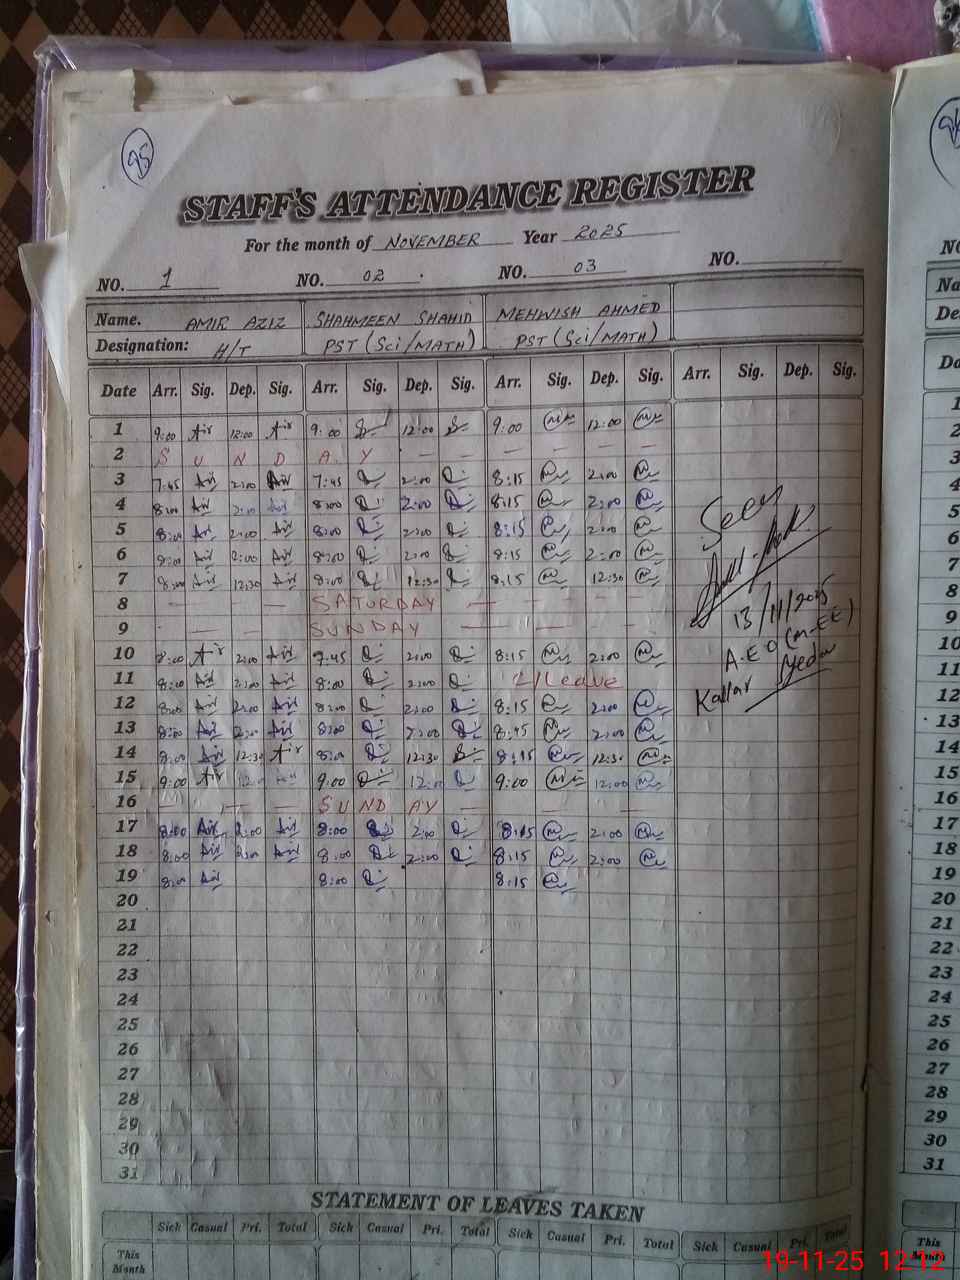 95
STAFF'S ATTENDANCE REGISTER
For the month of NOVEMBER Year 2025
NO. 1 NO. 02 NO. 03 NO.
Name. AMIR AZIZ SHAHMEEN SHAHID MEHWISH AHMED
Designation: H/T PST (Sci/MATH) PST (Sci/MATH)
Date Arr. Sig. Dep. Sig. Arr. Sig. Dep. Sig. Arr. Sig. Dep. Sig. Arr. Sig. Dep. Sig.
1 9:00 12:00 9:00 12:00 9:00 12:00
2 S U N D A Y — — — — — —
3 7:45 2:00 7:45 2:00 8:15 2:00
4 8:00 2:00 8:00 2:00 8:15 2:00
5 8:00 2:00 8:00 2:00 8:15 2:00
6 8:00 2:00 8:00 2:00 8:15 2:00
7 8:00 12:30 8:00 12:30 8:15 12:30
8 — — — SATURDAY — — — —
9 — — SUNDAY — — — —
10 8:00 2:00 2:00 8:15 2:00
11 8:00 2:00 8:00 2:00 Leave
12 8:00 2:00 8:00 2:00 8:15 2:00
13 8:00 2:00 8:00 2:00 2:00
14 8:00 12:30 8:00 12:30 12:30
15 9:00 9:00 9:00 12:00
16 — — SUNDAY —
17 8:00 2:00 8:00 2:00 8:15 2:00
18 8:00 2:00 8:00 2:00 8:15 2:00
19 8:00 8:00 8:15
20
21
22
23
24
25
26
27
28
29
30
31
Seen
13/11/2025
A.EO (M-EE)
Kallar Syedan
STATEMENT OF LEAVES TAKEN
Sick Casual Pri. Total Sick Casual Pri. Total Sick Casual Pri. Total Sick Casual Pri. Total
This
Month
NO
Na
De
Da
1
2
3
4
5
6
7
8
9
10
11
12
13
14
15
16
17
18
19
20
21
22
23
24
25
26
27
28
29
30
31
This
Month
19-11-25 12:12